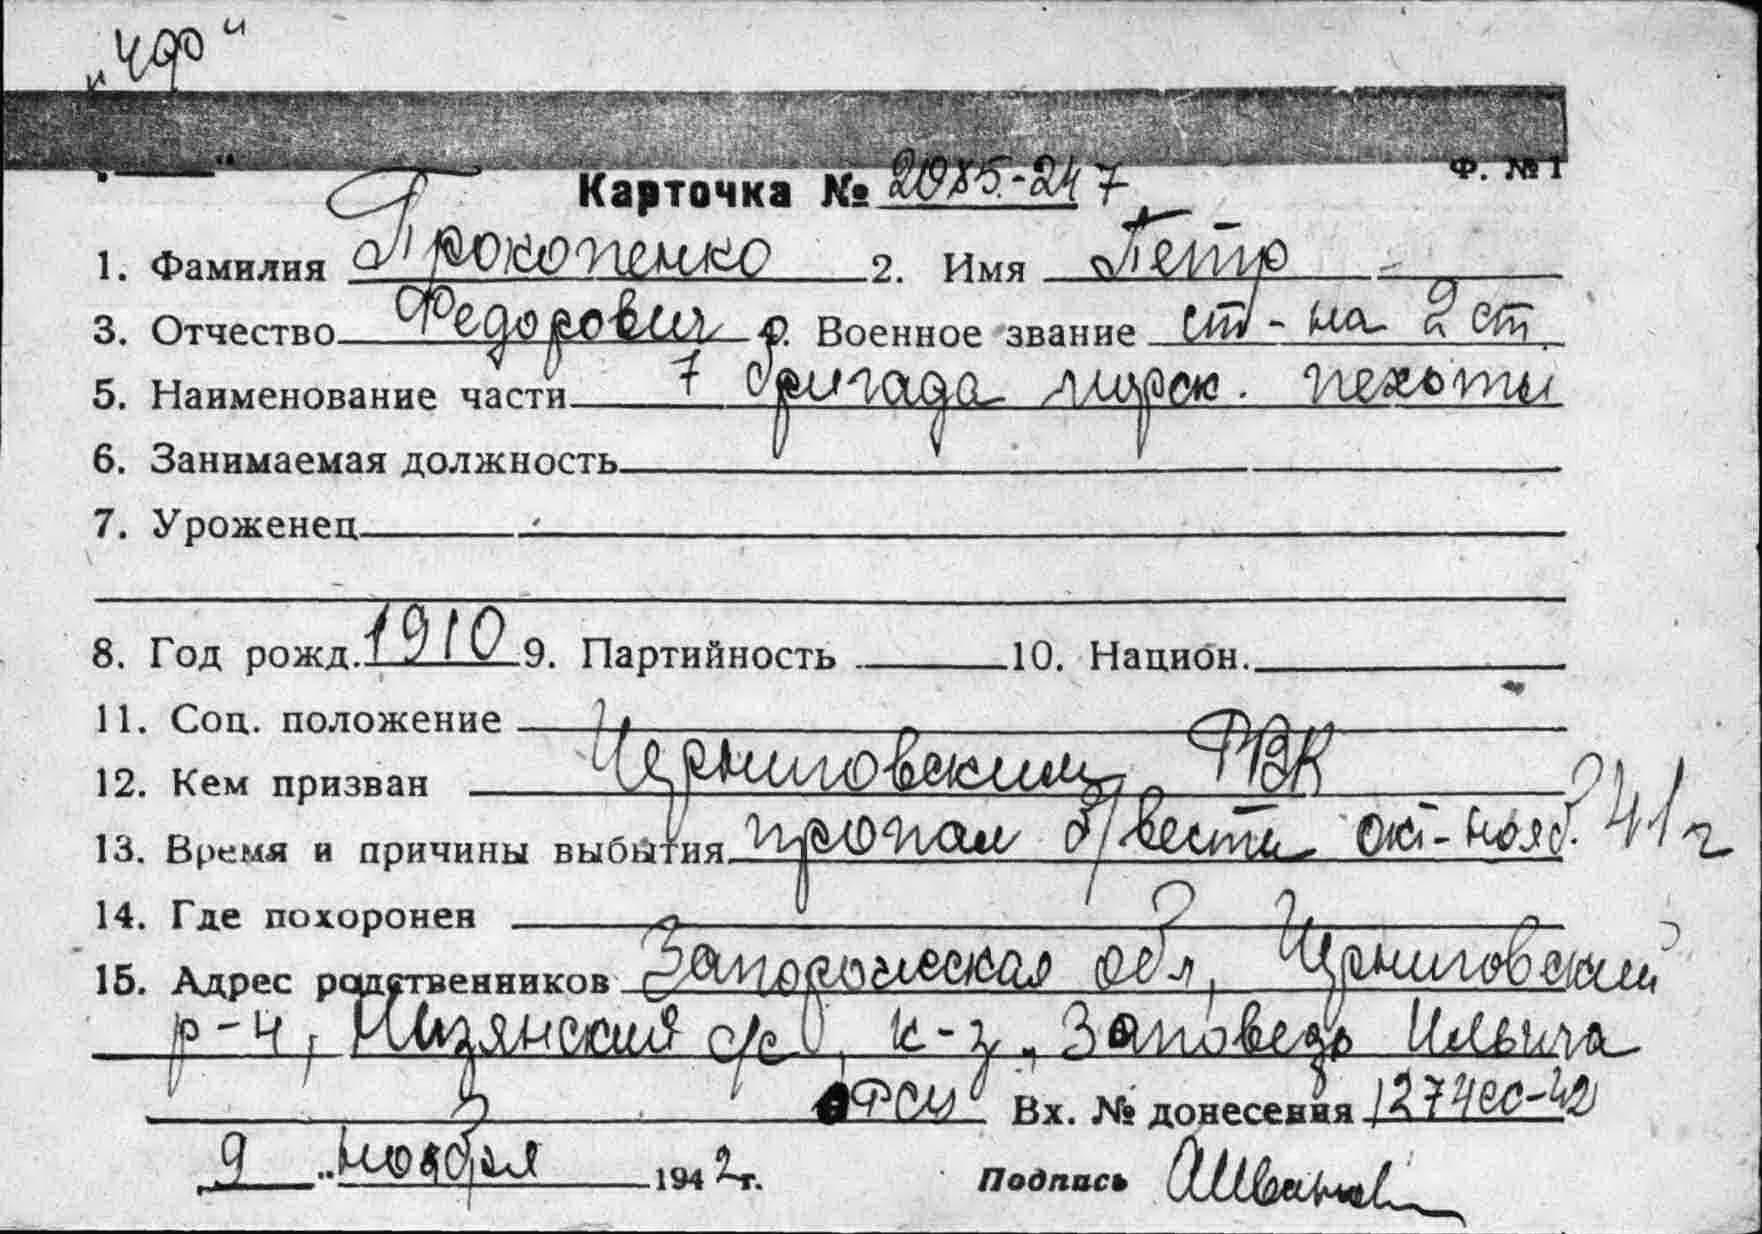 „ЧФ“
Ф. № 1
Карточка № 2985-247
1. Фамилия Прокопенко 2. Имя Петр
3. Отчество Федорович р. Военное звание ст-на 2 ст.
5. Наименование части 7 бригада морск. пехоты
6. Занимаемая должность
7. Уроженец
8. Год рожд. 1910 9. Партийность 10. Национ.
11. Соц. положение
12. Кем призван Черниговским РВК
13. Время и причины выбытия пропал б/вести окт-нояб. 41 г
14. Где похоронен
15. Адрес родственников Запорожская обл, Черниговский
р-н, Низянский с/с, к-з „Заповедь Ильича
Вх. № донесения 1274сс-42
9 „ ноября 1942 г.
Подпись